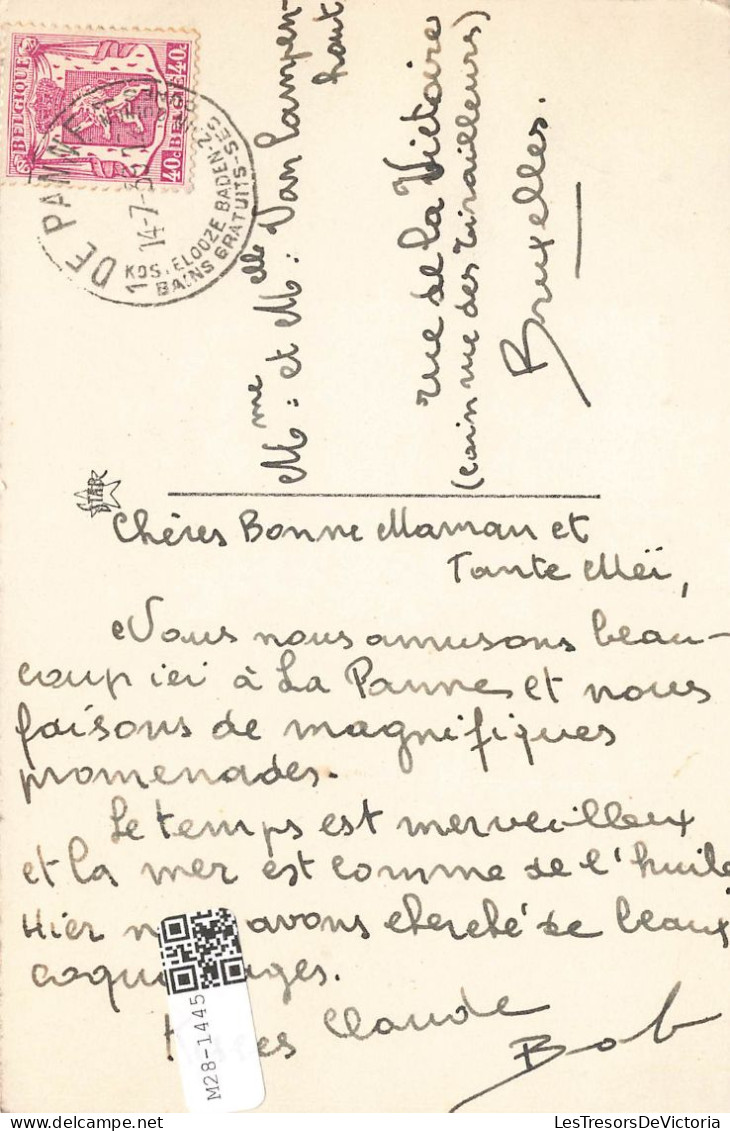 BELGIQUE
40c
40c
BELGIE
DE PANNE
1
14-7-
KOSTELOOZE BADEN-Z
BAINS GRATUITS-SES
Mme et Melle Van Campen-
haut
rue de la Victoire
(coin rue des Tirailleurs)
Bruxelles.
STAR
Chères Bonne Maman et
Tante Meï,
Nous nous amusons beau-
coup ici à La Panne et nous
faisons de magnifiques
promenades.
Le temps est merveilleux
et la mer est comme de l'huile
Hier avons cherché de beaux
coqu ges.
Claude
Bob
M28-1445
LesTresorsDeVictoria.com